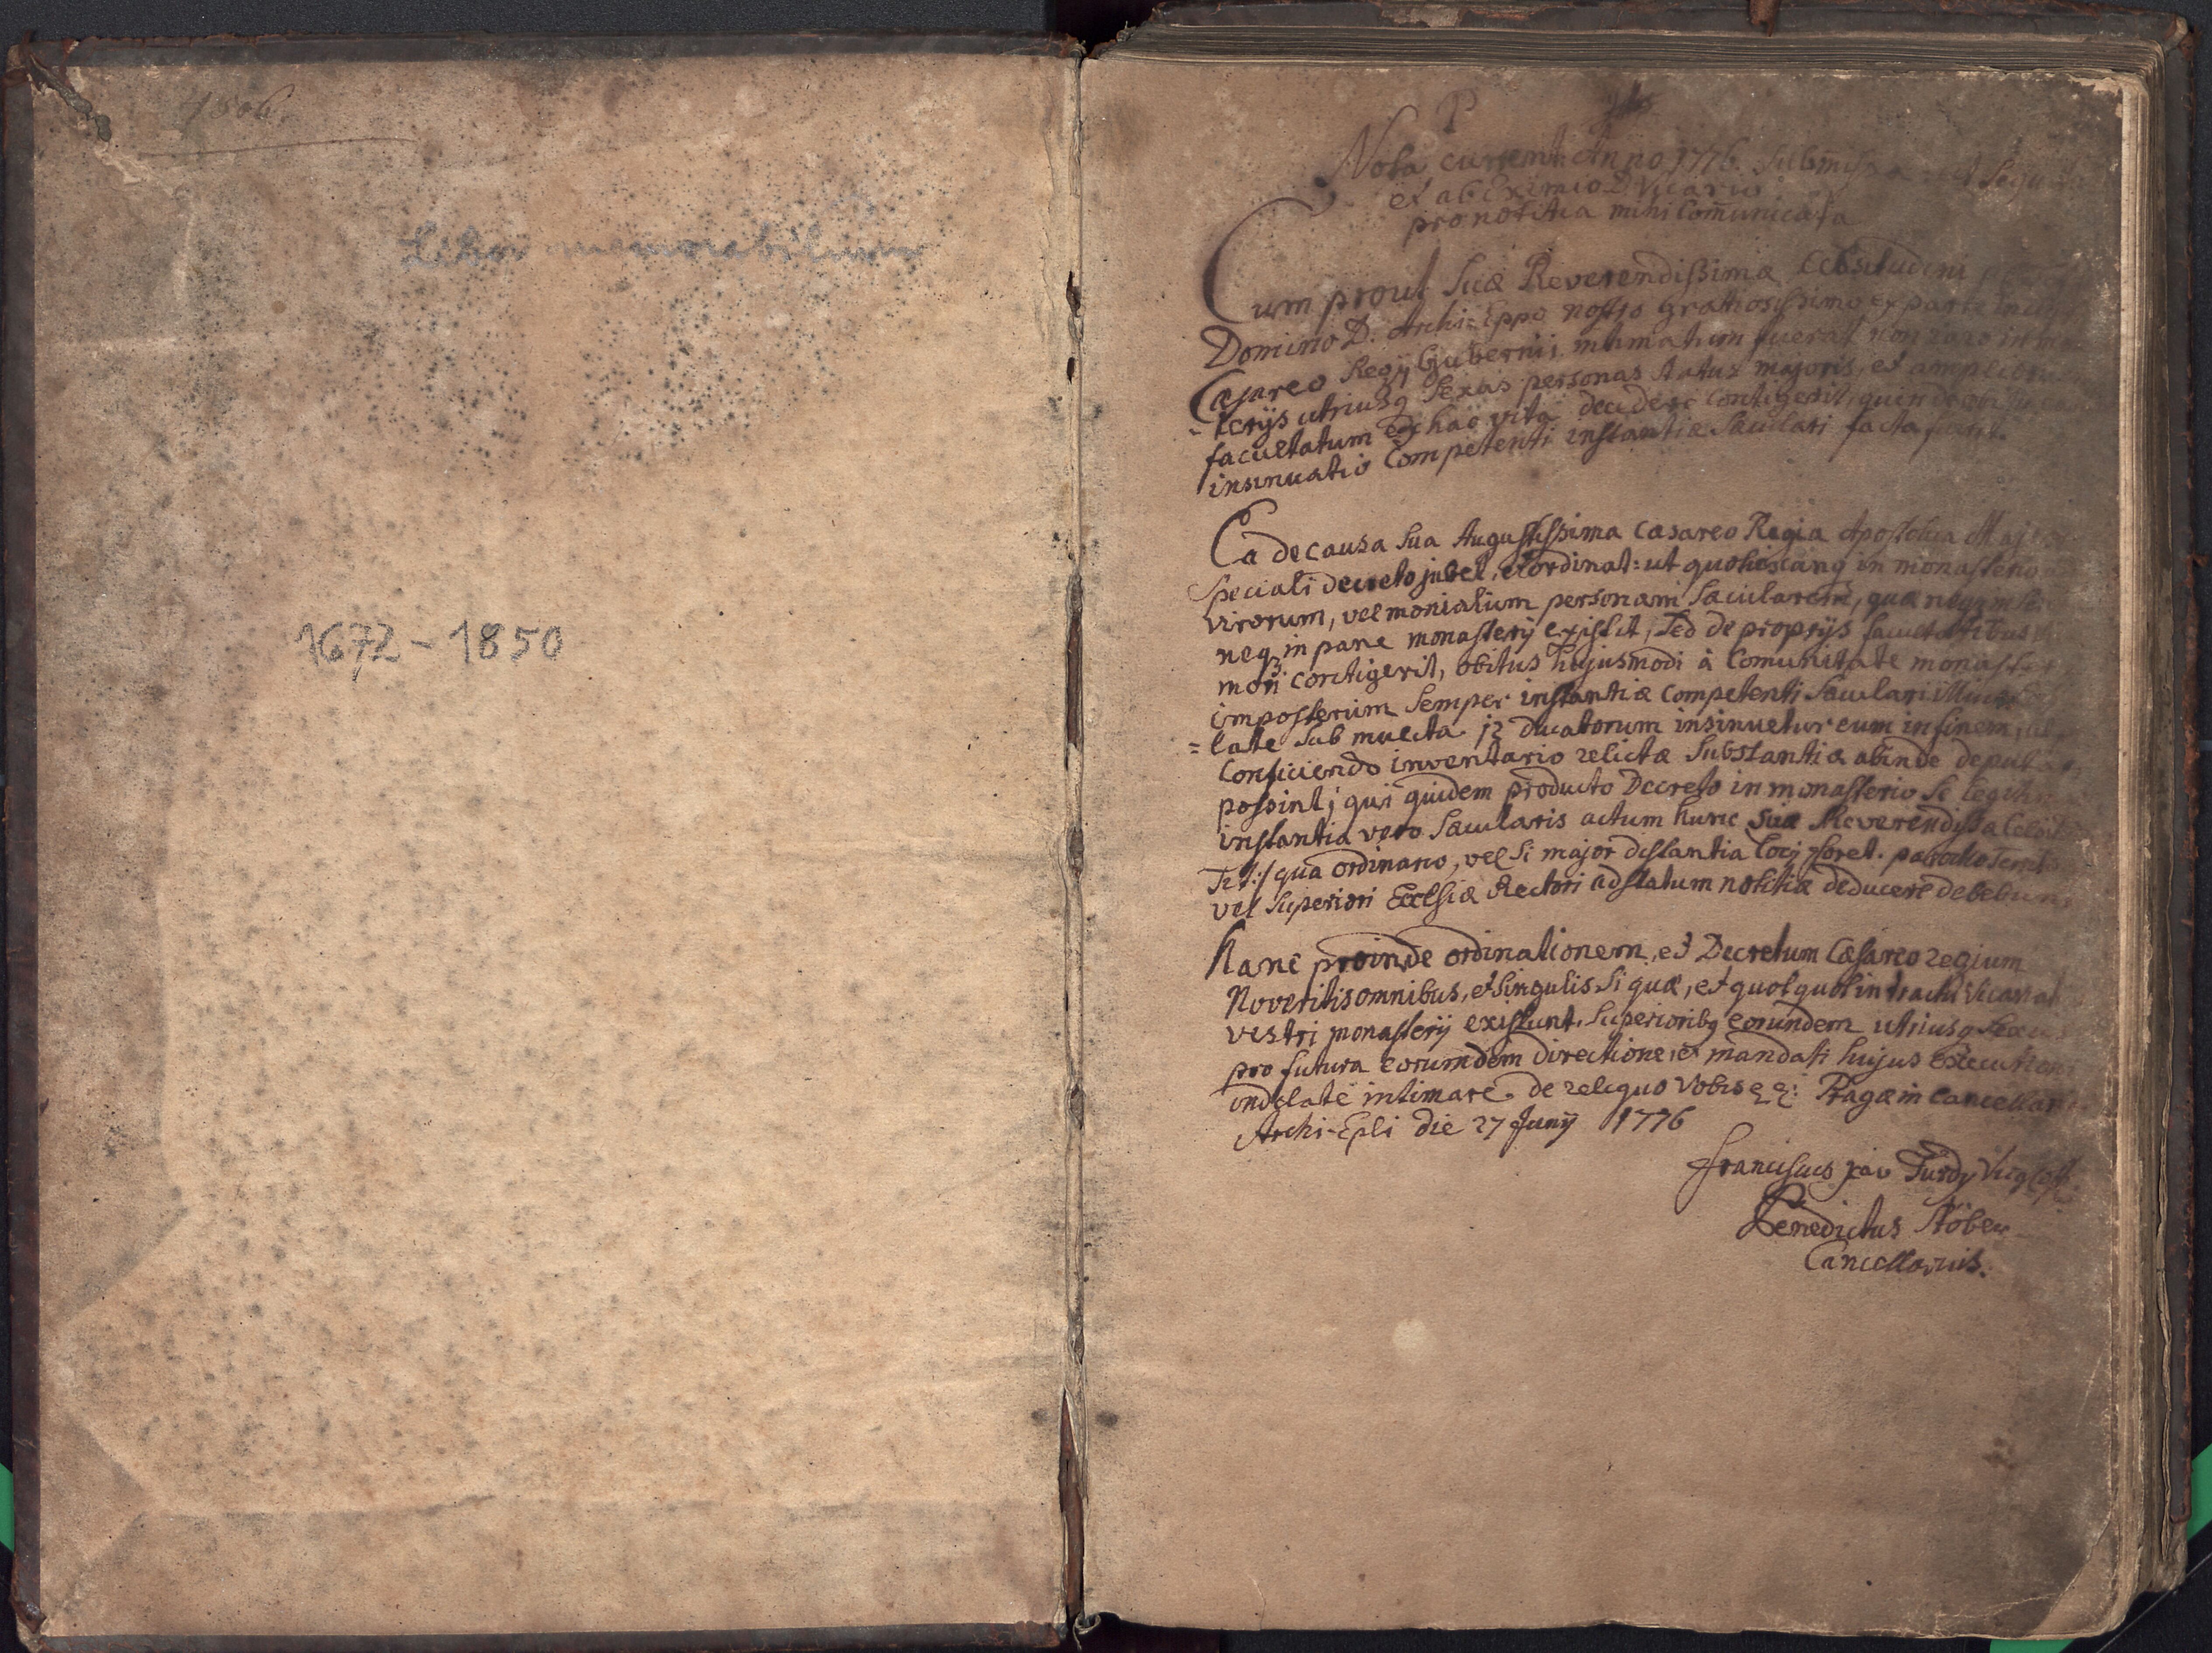 1506
Liber memorabilium
1672 - 1850
P
Nota current. Anno 1776. Submissa
et ab Eximio D. Vicario
pro notitia mihi Com̄unicata
Cum prout Suæ Reverendissimæ Celsitudini
Domino D. Archi-Eppo nostro gratiosissimo ex parte
Cæsareo Regij Gubernij intimatum fuerat non raro in
-terijs utriusq Sexus personas status majoris, et amplioru
facultatum ex hac vita decedere contigerit, quin de
insinuatio Competenti instantiæ Sæculari facta fuerit.
Ea de causa Sua Augustissima Cæsareo Regia Apostolica Maj
Speciali decreto jubet, et ordinat: ut quotiescunq in monasterio
virorum, vel monialium personam Sæcularem, quæ neq
neq in pane monasterij existit, Sed de proprijs facultatibus
mori contigerit, obitus hujusmodi à Com̄unitate monast
imposterum Semper instantiæ Competenti Sæculari illico
=late Sub mulcta 12 ducatorum insinuetur eum in finem
Conficiendo inventario relictæ Substantiæ abinde deputa
possint; qui quidem producto Decreto in monasterio Se legit
instantia vero Sæcularis actum hunc Suæ Reverendissæ Cels
Tit:/ qua ordinario, vel Si major distantia Locj foret. parocho
vel Superiori Ecclesiæ Rectori ad statum notitiæ deducere debebun
Hanc proinde ordinationem, et Decretum Cæsareo regium
Noveritis omnibus, et Singulis Si quæ, et quotquot in tractu Vicariat
vestri monasterij existunt, Superioribq eorundem utriusq Sexu
pro futura eorumdem directione, et mandati hujus executione
indelate intimare. de reliquo Vobis Pragæ in Cancellar
Archi-Epli die 27 Junij 1776
Franciscus Xav Turdy
Benedictus Stöber
Cancellarius.